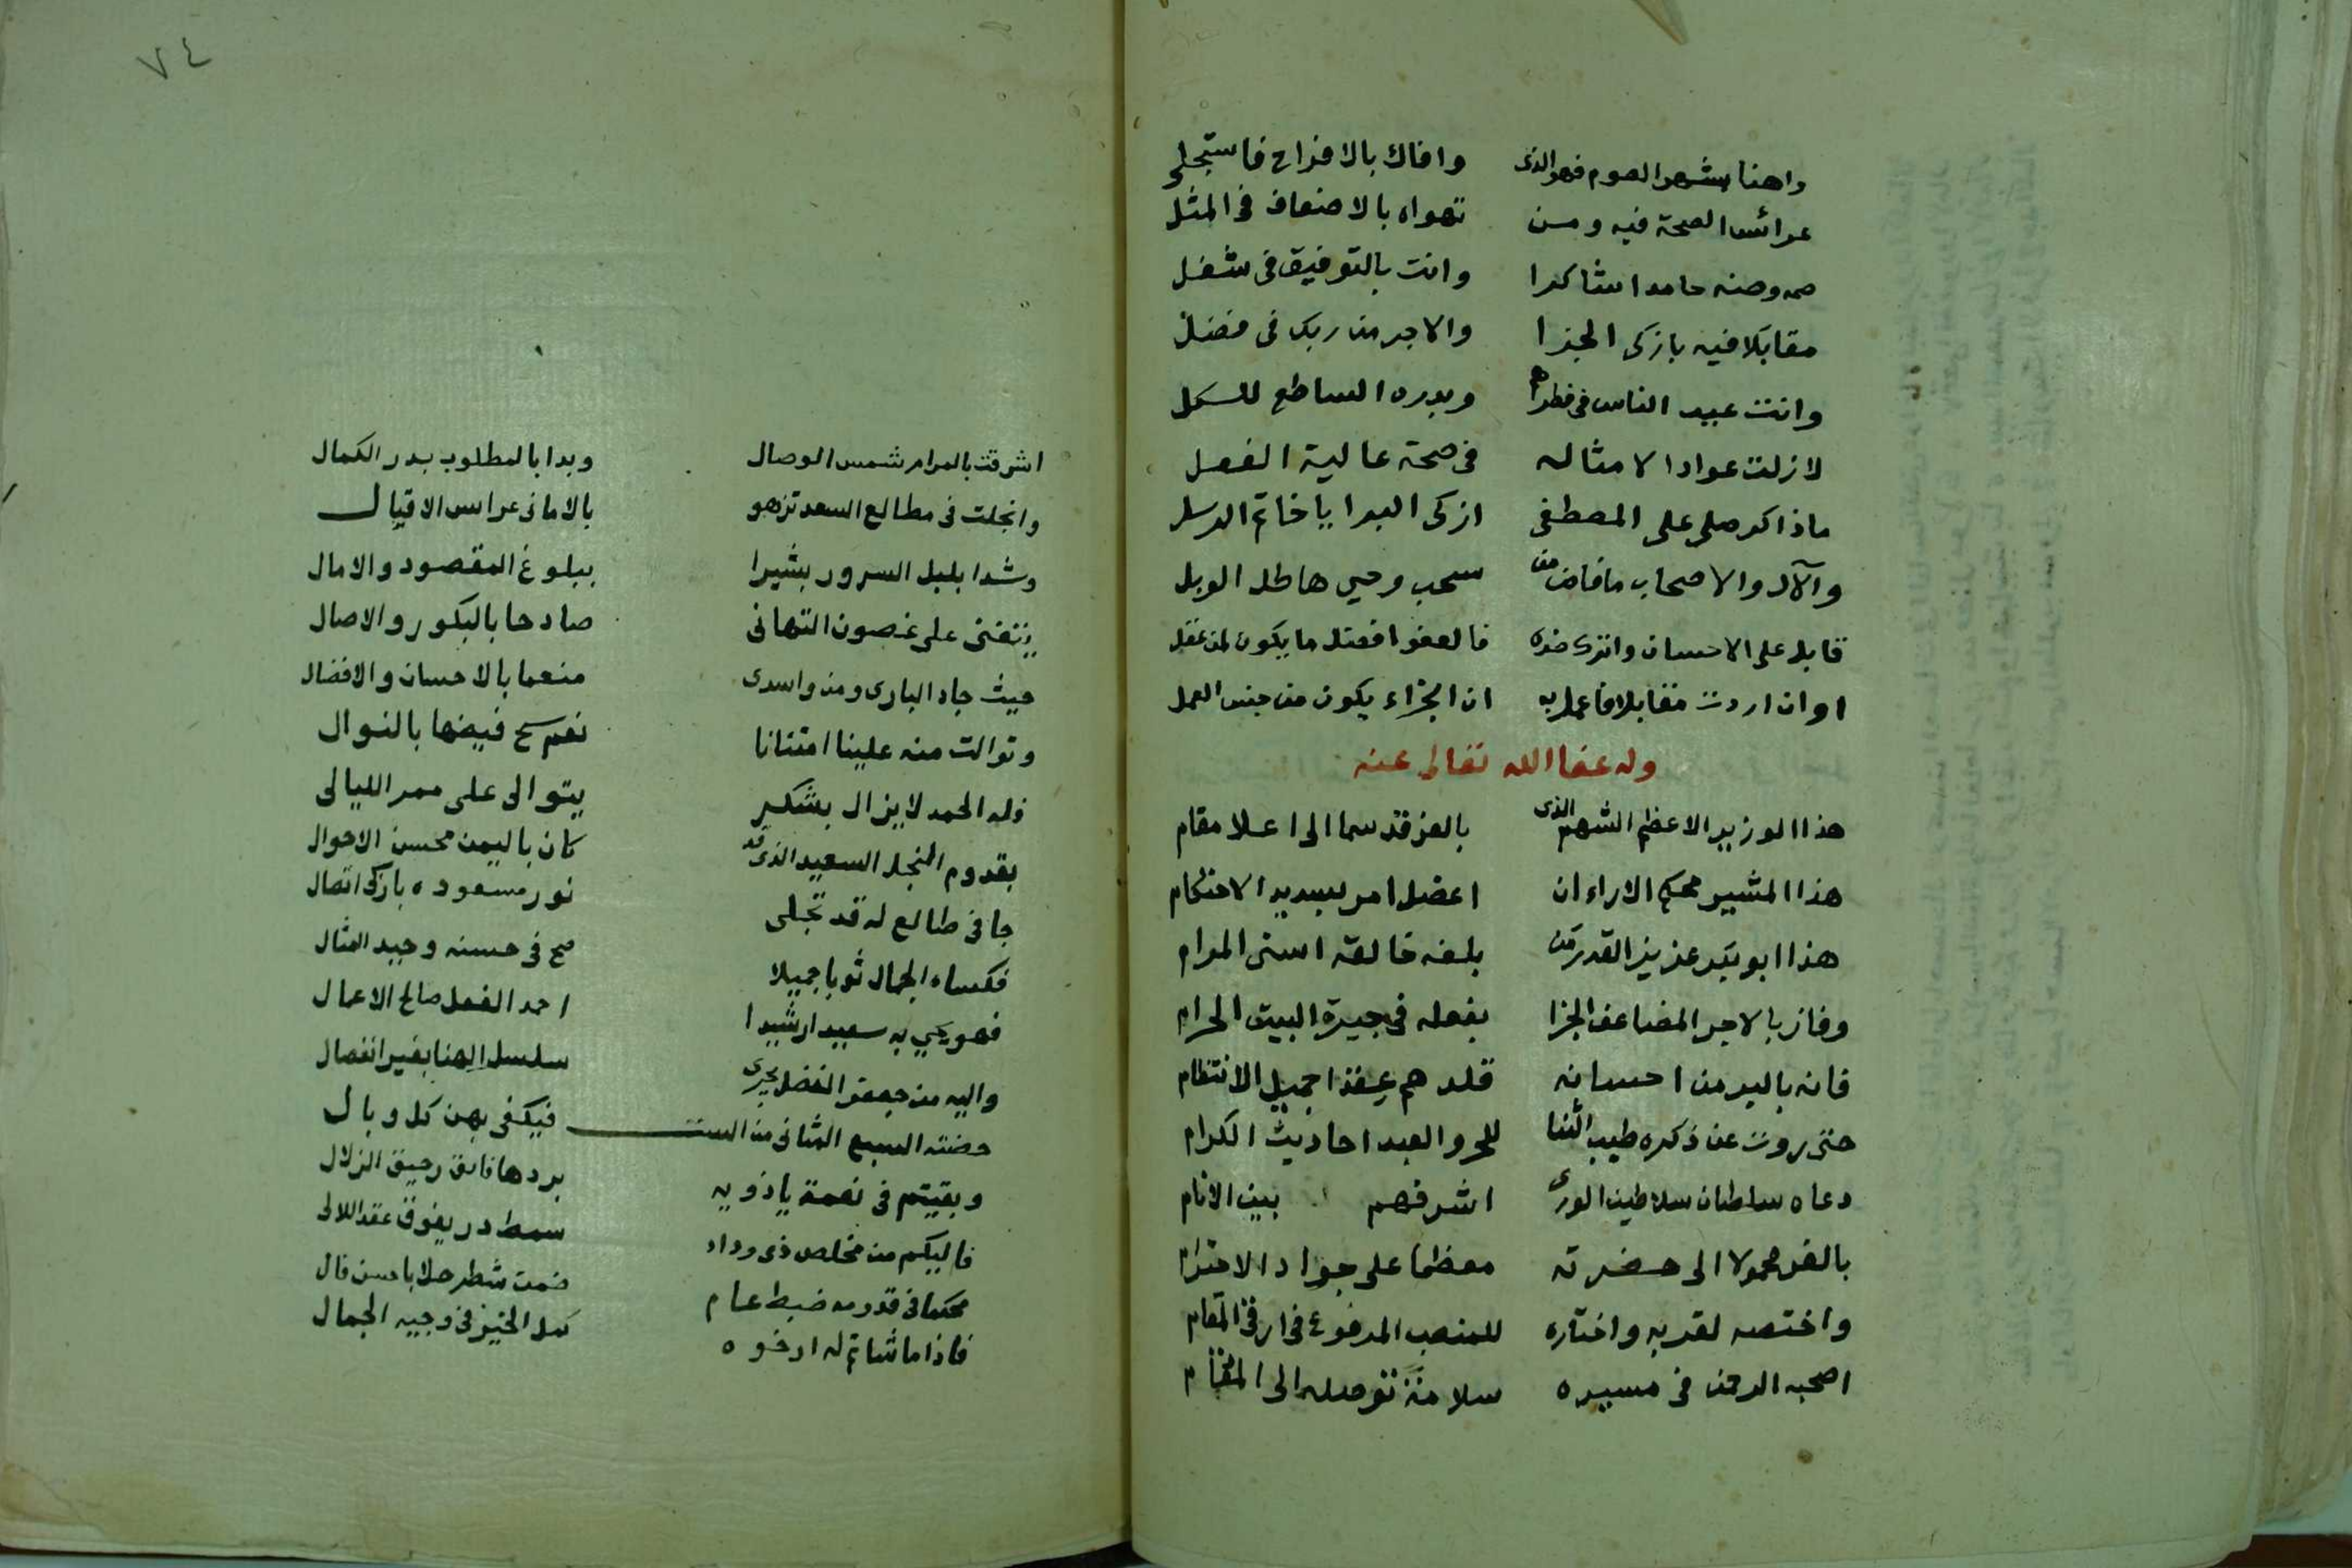 واهنا بشهر الصوم فهو الذى وافاك بالافراح فاستجلى
عرائس الصحة فيه ومن تهواه بالاضعاف فى المثل
صمه وصنه حامدا شاكرا وانت بالتوفيق فى شغل
مقابلا فيه بازكى الجزا والاجر من ربك فى فضل
وانت عيد الناس فى فطرهم وبدره الساطع للكل
لا زلت عوادا لامثاله فى صحة عالية الفعل
ماذاكر صلى على المصطفى ازكى البرايا خاتم الرسل
والآل والاصحاب ما فاض من سحب وحى هاطل الوبل
قابل على الاحسان واترك ضده فالعفو افضل ما يكون لمن عقل
او ان اردت مقابلا فاعمل به ان الجزاء يكون من جنس العمل
وله عفا الله تعالى عنه
هذا الوزير الاعظم الشهم الذى بالعز قد سما الى اعلا مقام
هذا المشير محكم الاراء ان اعضل امر بسديد الاحكام
هذا ابو عزيز القدر من بلغه خالقه اسنى المرام
وفاز بالاجر المضاعف الجزا بفعله فى جيرة البيت الحرام
فانه بالبر من احسانه قلدهم عقدا جميل الانتظام
حتى روت عن ذكره طيب الثنا للحر والعبد احاديث الكرام
دعاه سلطان سلاطين الورى اشرفهم بين الانام
بالعز محمولا الى حضرته معظما على جواد الاحترام
واختصه لقربه واختاره للمنصب المرفوع فى ارقى المقام
اصحبه الرحمن فى مسيره سلامة توصله الى المقام
٧٤
اشرقت بالمرام شمس الوصال وبدا بالمطلوب بدر الكمال
وانجلت فى مطالع السعد تزهو بالامانى عراس الاقبال
وشدا بلبل السرور بشيرا ببلوغ المقصود والامال
يتغنى على غصون التهانى صادحا بالبكور والاصال
حيث جاد البارى ومن واسدى منعما بالاحسان والافضال
وتوالت منه علينا امتنانا نعم سح فيضها بالنوال
فله الحمد لا يزال بشكر يتوالى على ممر الليالى
بقدوم النجل السعيد الذى قد كان باليمن محسن الاحوال
جا فى طالع له قد تجلى نور مسعوده بازكى اتصال
فكساه الجمال ثوبا جميلا صح فى حسنه وحيد المثال
فهو يحيى به سعيدا رشيدا احمد الفعل صالح الاعمال
واليه من جعفر الفضل يجرى سلسل الهنا بغير انفصال
حضنته السبع المثانى من الست فيكفى بهن كل وبال
وبقيتم فى نعمة يا ذويه بردها فائق رحيق الزلال
فاليكم من مخلص ذى وداد سمط در يفوق عقد اللالى
محكما فى قدومه ضبط عام ضمن شطر حلا باحسن قال
فاذا ما شاتم له ارخوه كمل الخير فى وجيه الجمال